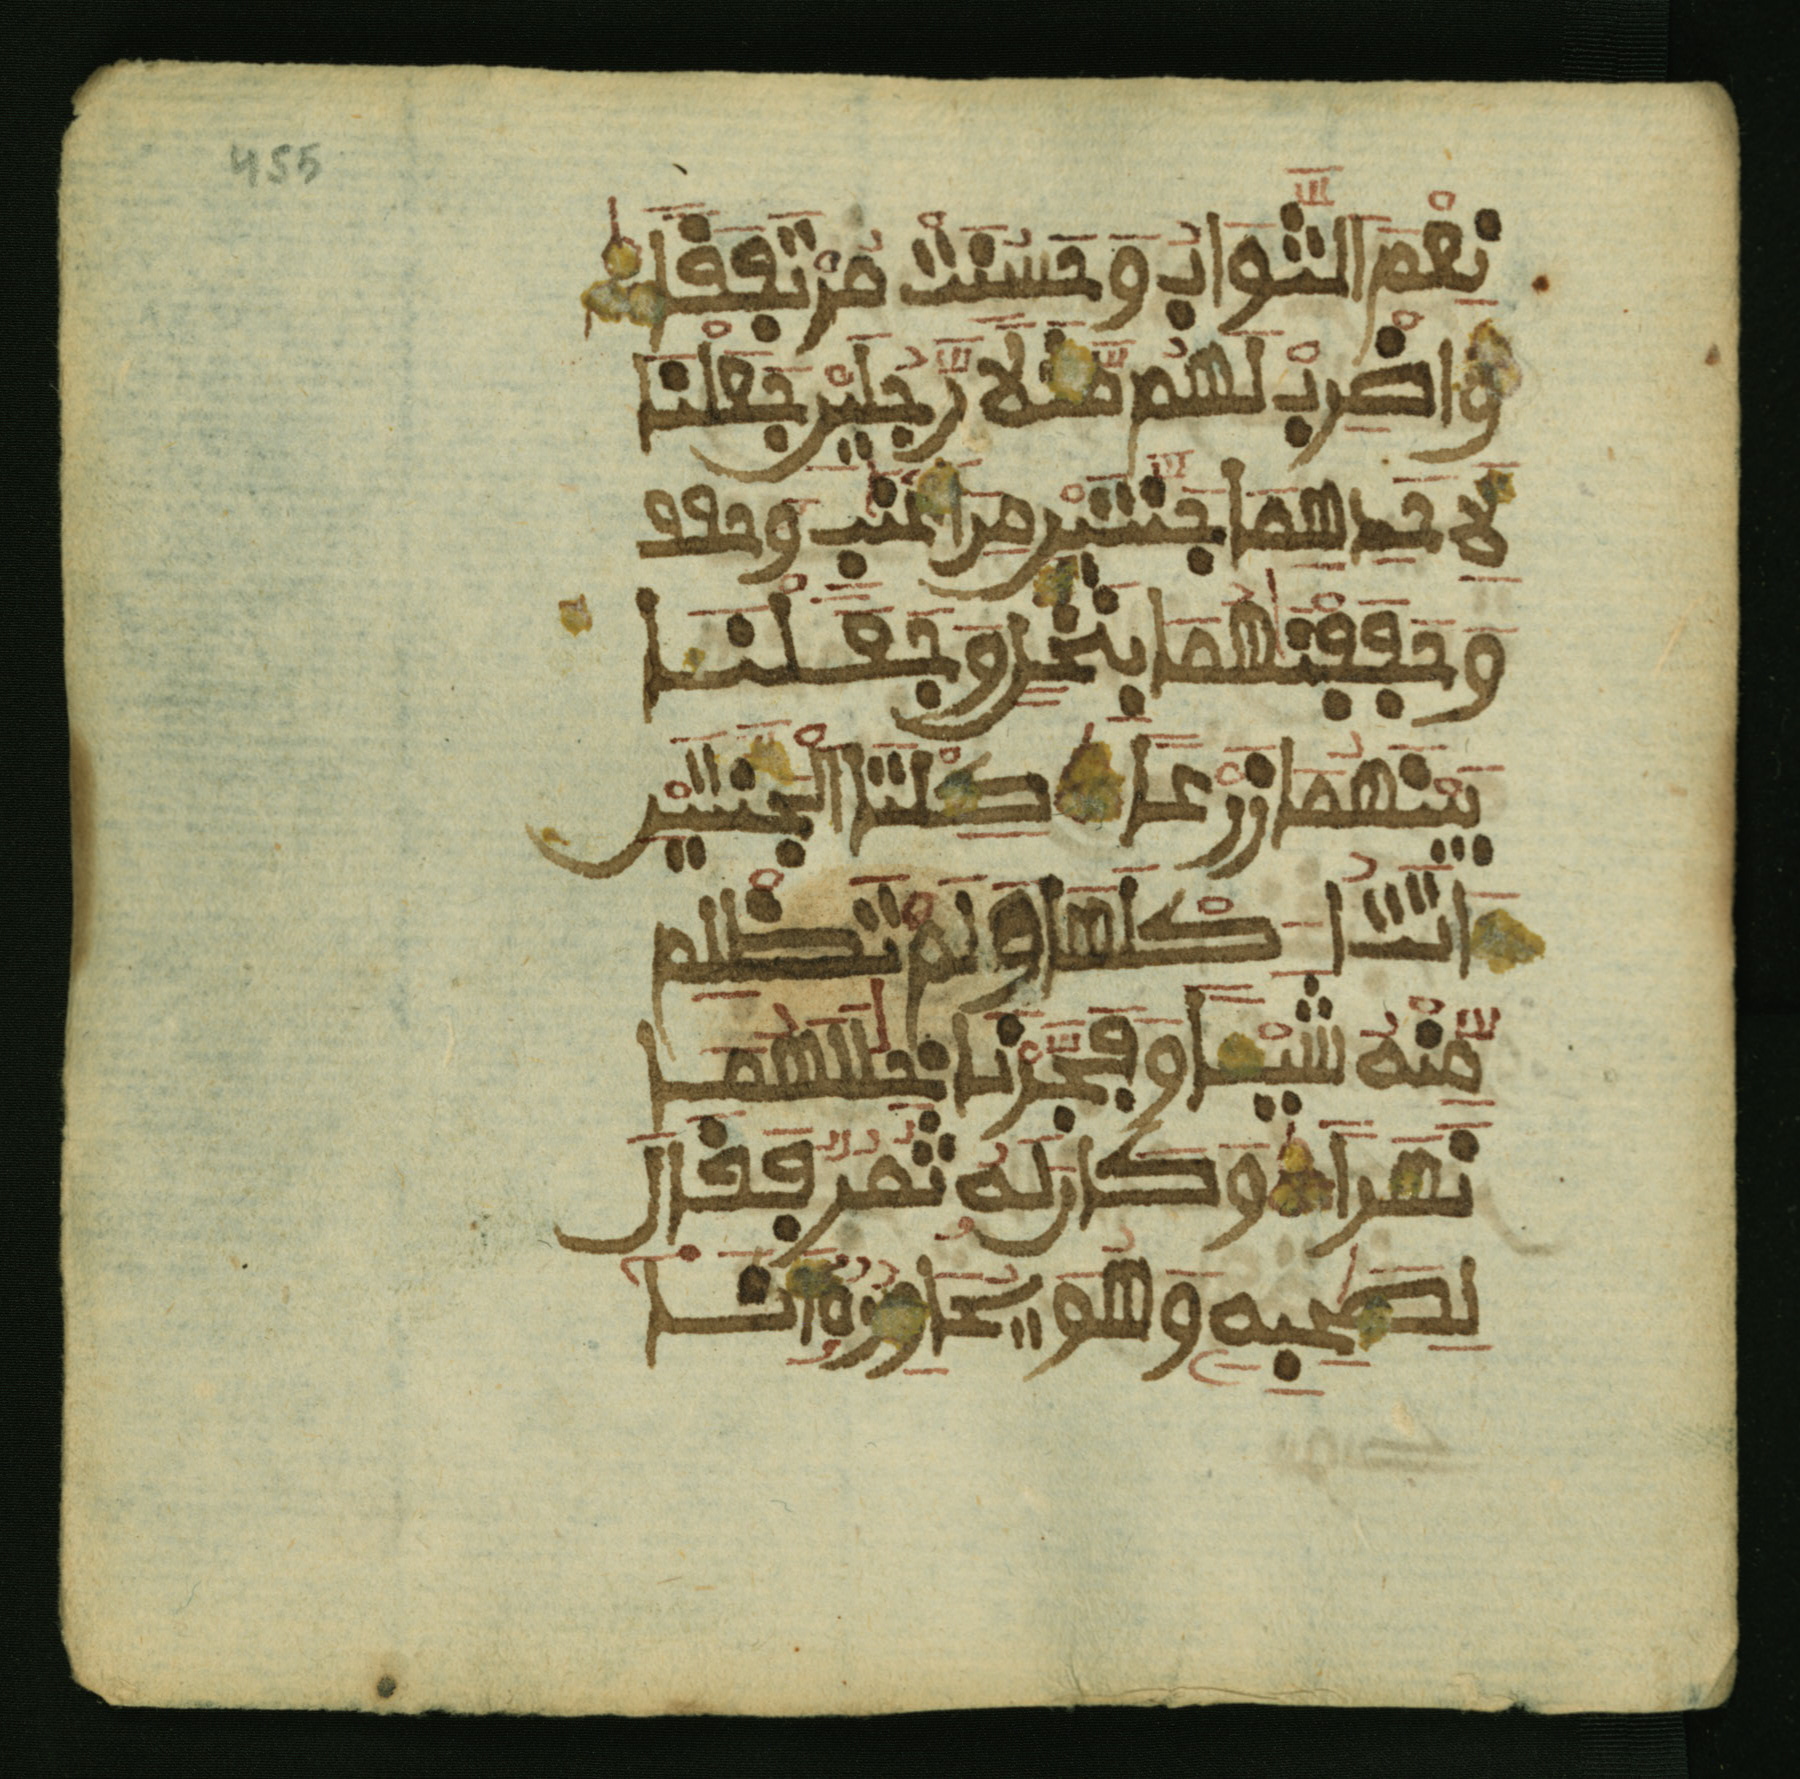 455
نعم الثواب وحسنت مرتفقا
واضرب لهم مثلا رجلين جعلنا
لاحدهما جنتين من اعنب وحفف
وحففنهما بنخل وجعلنا
بينهما زرعا كلتا الجنتين
اتت اكلها ولم تظلم
منه شيئا وفجرنا خللهما
نهرا وكان له ثمر فقال
لصحبه وهو يحاوره انا